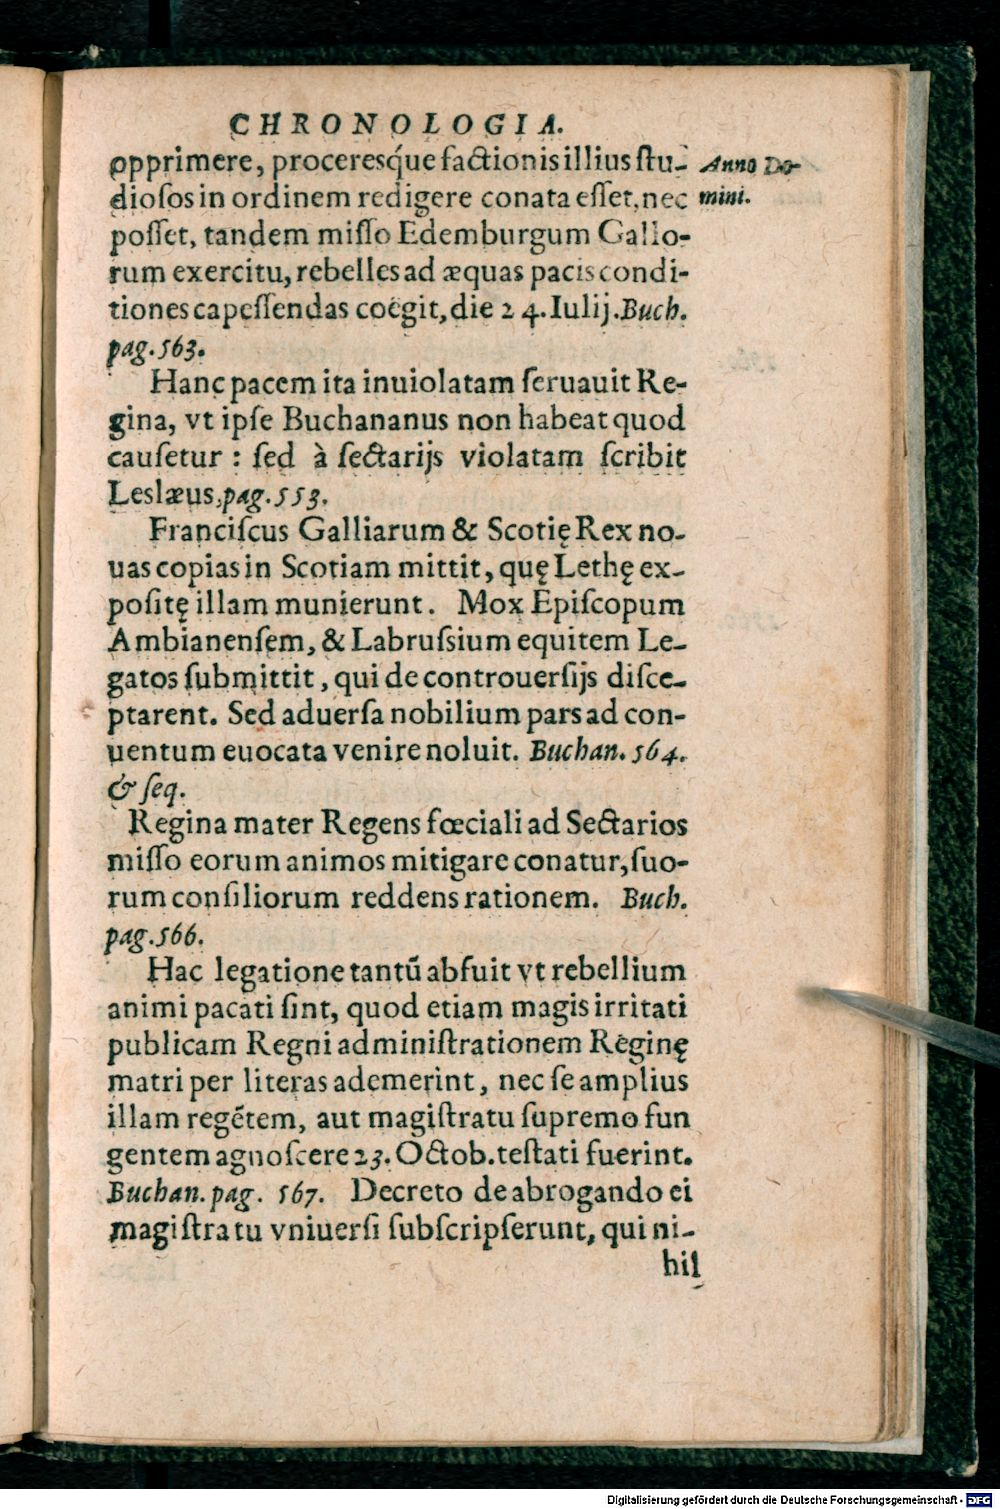 CHRONOLOGIA.
opprimere, proceresq́ue factionis illius ſtu- Anno Do-
dioſos in ordinem redigere conata eſſet, nec mini.
poſſet, tandem miſſo Edemburgum Gallo-
rum exercitu, rebelles ad æquas pacis condi-
tiones capeſſendas coëgit, die 24. Iulij. Buch.
pag. 563.
Hanc pacem ita inuiolatam ſeruauit Re-
gina, vt ipſe Buchananus non habeat quod
cauſetur : ſed à ſectarijs violatam ſcribit
Leslæus, pag. 553.
Franciſcus Galliarum & Scotię Rex no-
uas copias in Scotiam mittit, quę Lethę ex-
poſitę illam munierunt. Mox Epiſcopum
Ambianenſem, & Labruſsium equitem Le-
gatos ſubmittit, qui de controuerſijs diſce-
ptarent. Sed aduerſa nobilium pars ad con-
uentum euocata venire noluit. Buchan. 564.
& ſeq.
Regina mater Regens fœciali ad Sectarios
miſſo eorum animos mitigare conatur, ſuo-
rum conſiliorum reddens rationem. Buch.
pag. 566.
Hac legatione tantũ abfuit vt rebellium
animi pacati ſint, quod etiam magis irritati
publicam Regni adminiſtrationem Reginę
matri per literas ademerint, nec ſe amplius
illam regẽtem, aut magiſtratu ſupremo fun
gentem agnoſcere 23. Octob. teſtati fuerint.
Buchan. pag. 567. Decreto de abrogando ei
magiſtratu vniuerſi ſubſcripſerunt, qui ni-
hil
Digitalisierung gefördert durch die Deutsche Forschungsgemeinschaft - DFG